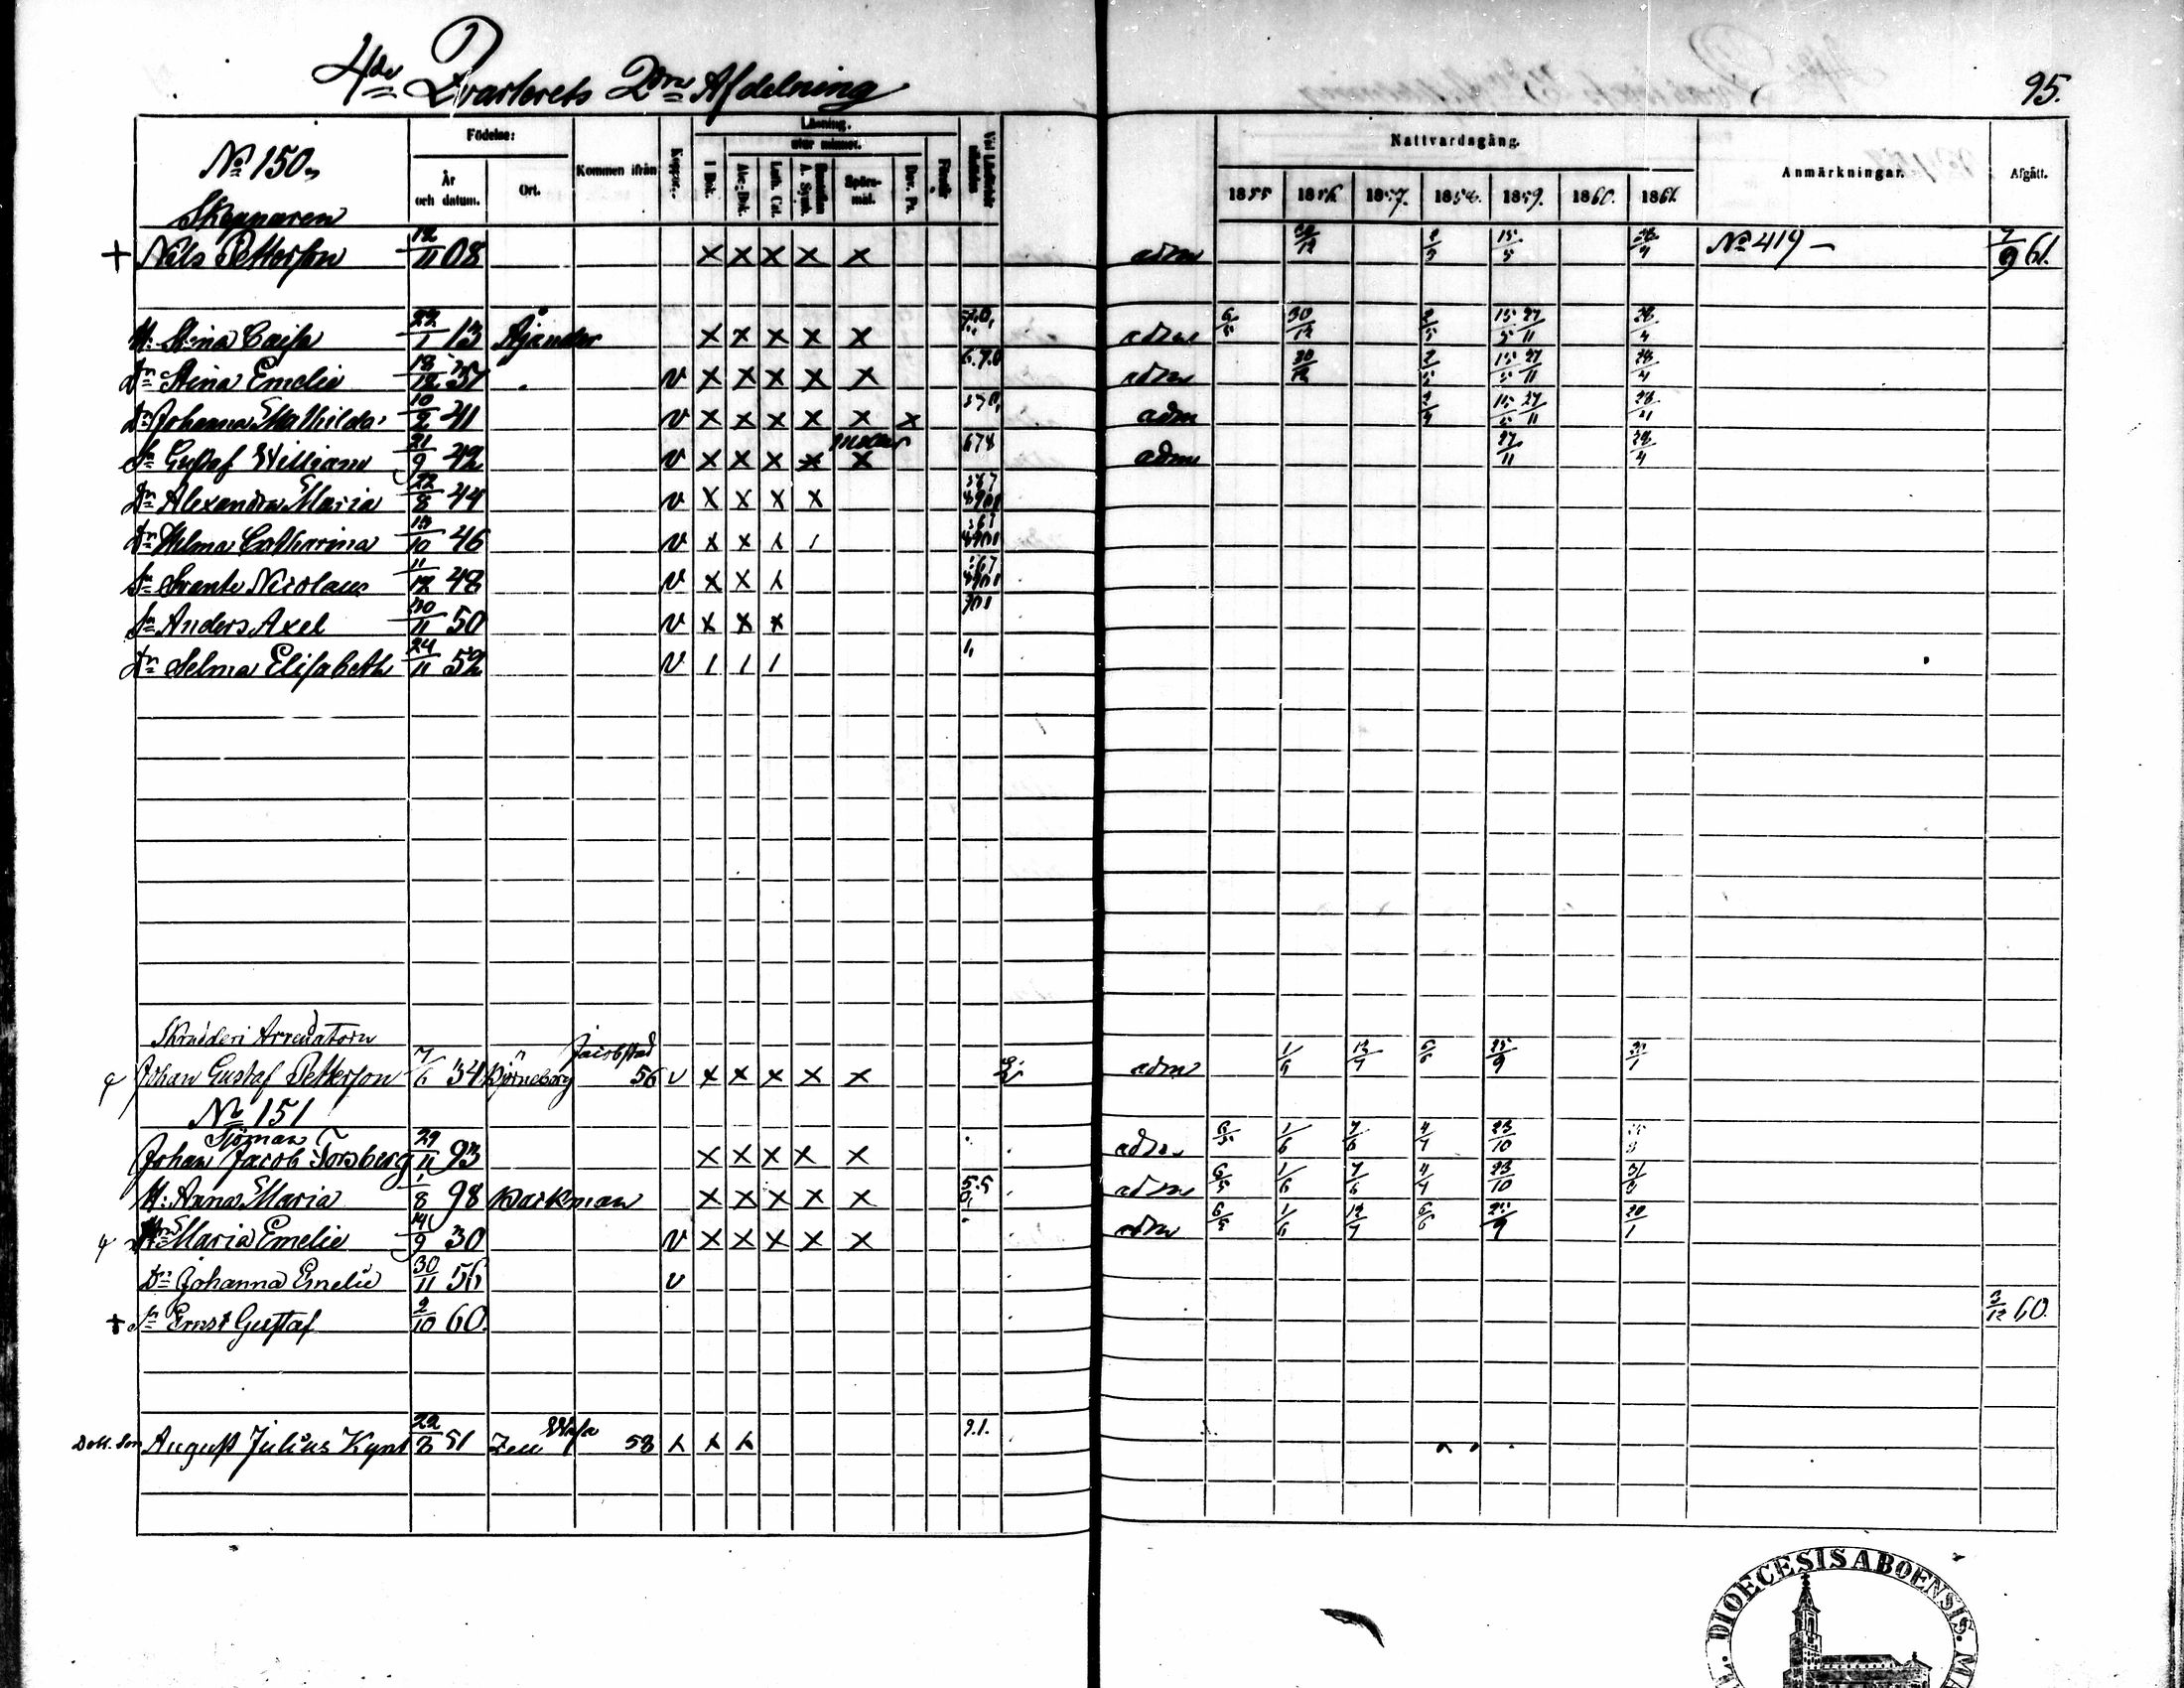 4de Qvarterets 2dra Afdelning
95.
No 150.
Födelse:
År och datum.
Ort.
Kommen ifrån
Koppor.
Läsning.
utur minnet.
I Bok.
Abc-Bok.
Luth. Cat.
A. Symb.
Spörs-mål.
Dav. Ps.
Nattvardsgång.
1855 1856 1857. 1858. 1859. 1860. 1861.
Anmärkningar.
Afgått.
Skepparen
+ Nils Petterson 12/11 08 X X X X X adm 30/12 2/5 15/5 28/4 No 419 — 7/9 61.
H: Stina Caisa 22/1 13 Ajander X X X X X adm 6/5 30/12 2/5 15/5 27/11 28/4
Dn Stina Emelie 18/12 37 v X X X X X 6.7.0 adm 30/12 2/5 15/5 27/11 28/4
Dn Johanna Mathilda 10/2 41 v X X X X X X adm 15/5 27/11 28/4
Sn Gustaf William 21/9 42 v X X X X X 678 adm 27/11 28/4
Dn Alexandra Maria 22/8 44 v X X X X
Dn Hilma Catharina 13/10 46 v X X
Sn Svante Nicolaus 11/12 48 v X X
Sn Anders Axel 30/11 50 v X X X
Dn Selma Elisabeth 24/11 52 v / / /
Skrädderi Arrendatorn
Johan Gustaf Petterson 7/6 34 Björneborg Jacobstad 56 v X X X X X adm 1/6 12/7 6/6 25/9
No 151
Sjöman
Johan Jacob Forsberg 29/11 93 X X X X X adm 6/5 1/6 7/6 4/7 23/10
H: Anna Maria 1/8 98 Barkman X X X X X adm 6/5 1/6 7/6 4/7 23/10 31/3
Maria Emelie 14/9 30 v X X X X X adm 6/5 1/6 12/7 6/6 25/9 20/1
Dn Johanna Emelie 30/11 56 v
+ Sn Ernst Gustaf 2/10 60. 3/12 60.
Dott. Son August Julius 22/8 51 Wasa 58
DIOECESIS ABOENSIS.